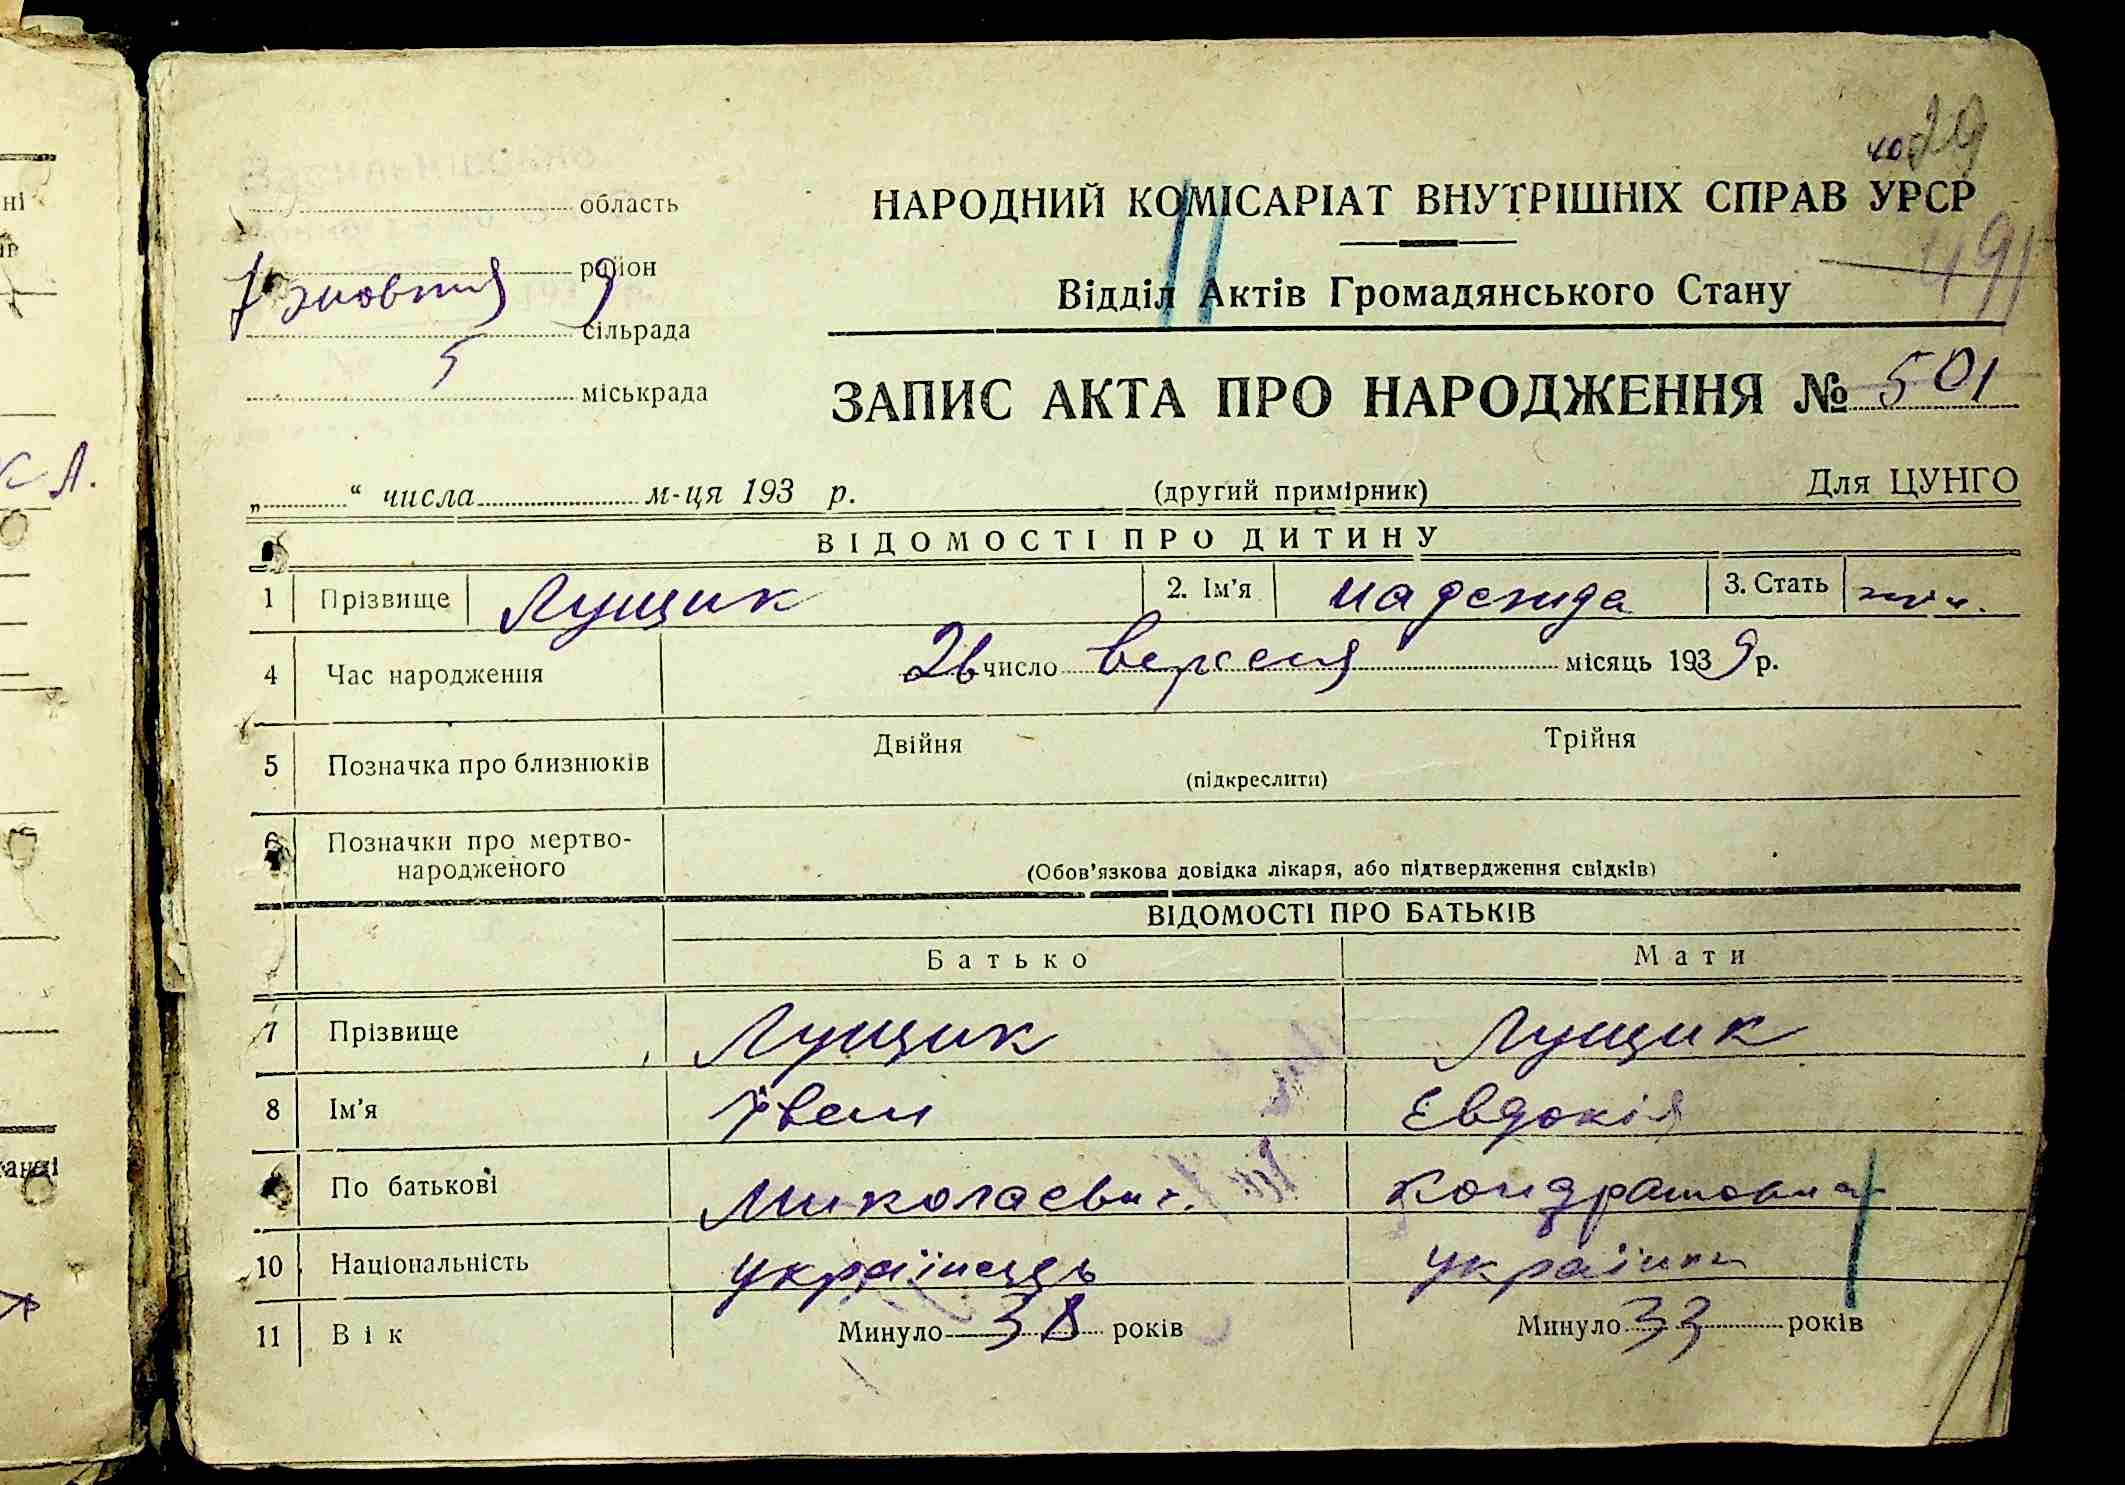 НАРОДНИЙ КОМІСАРІАТ ВНУТРІШНІХ СПРАВ УРСР
491
область
район
7 жовтня 9
сільрада
5
міськрада
Відділ Актів Громадянського Стану
ЗАПИС АКТА ПРО НАРОДЖЕННЯ № 501
„ “ числа м-ця 193 р. (другий примірник) Для ЦУНГО
ВІДОМОСТІ ПРО ДИТИНУ
1 Прізвище Лущик 2. Ім'я Надежда 3. Стать жін.
4 Час народження 26 число вересня місяць 1939 р.
5 Позначка про близнюків Двійня Трійня
(підкреслити)
6 Позначки про мертво-
народженого (Обов'язкова довідка лікаря, або підтвердження свідків)
ВІДОМОСТІ ПРО БАТЬКІВ
Батько Мати
7 Прізвище Лущик Лущик
8 Ім'я Іван Евдокія
По батькові Миколаєвич. Кондратовна
10 Національність українець українка
11 Вік Минуло 38 років Минуло 33 років